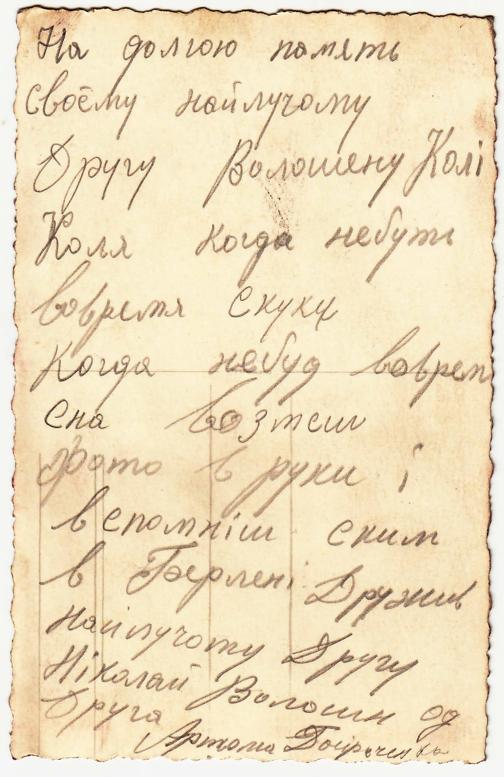 На долгою память
своему найлучому
Другу Волошену Колі
Коля когда небуть
вовремя скуки
Когда небуд воврем
сна возмеш
фото в руки і
вспомніш с ким
в Берлені Дружив
найлучому Другу
Ніколай Волошин од
Друга
Артома